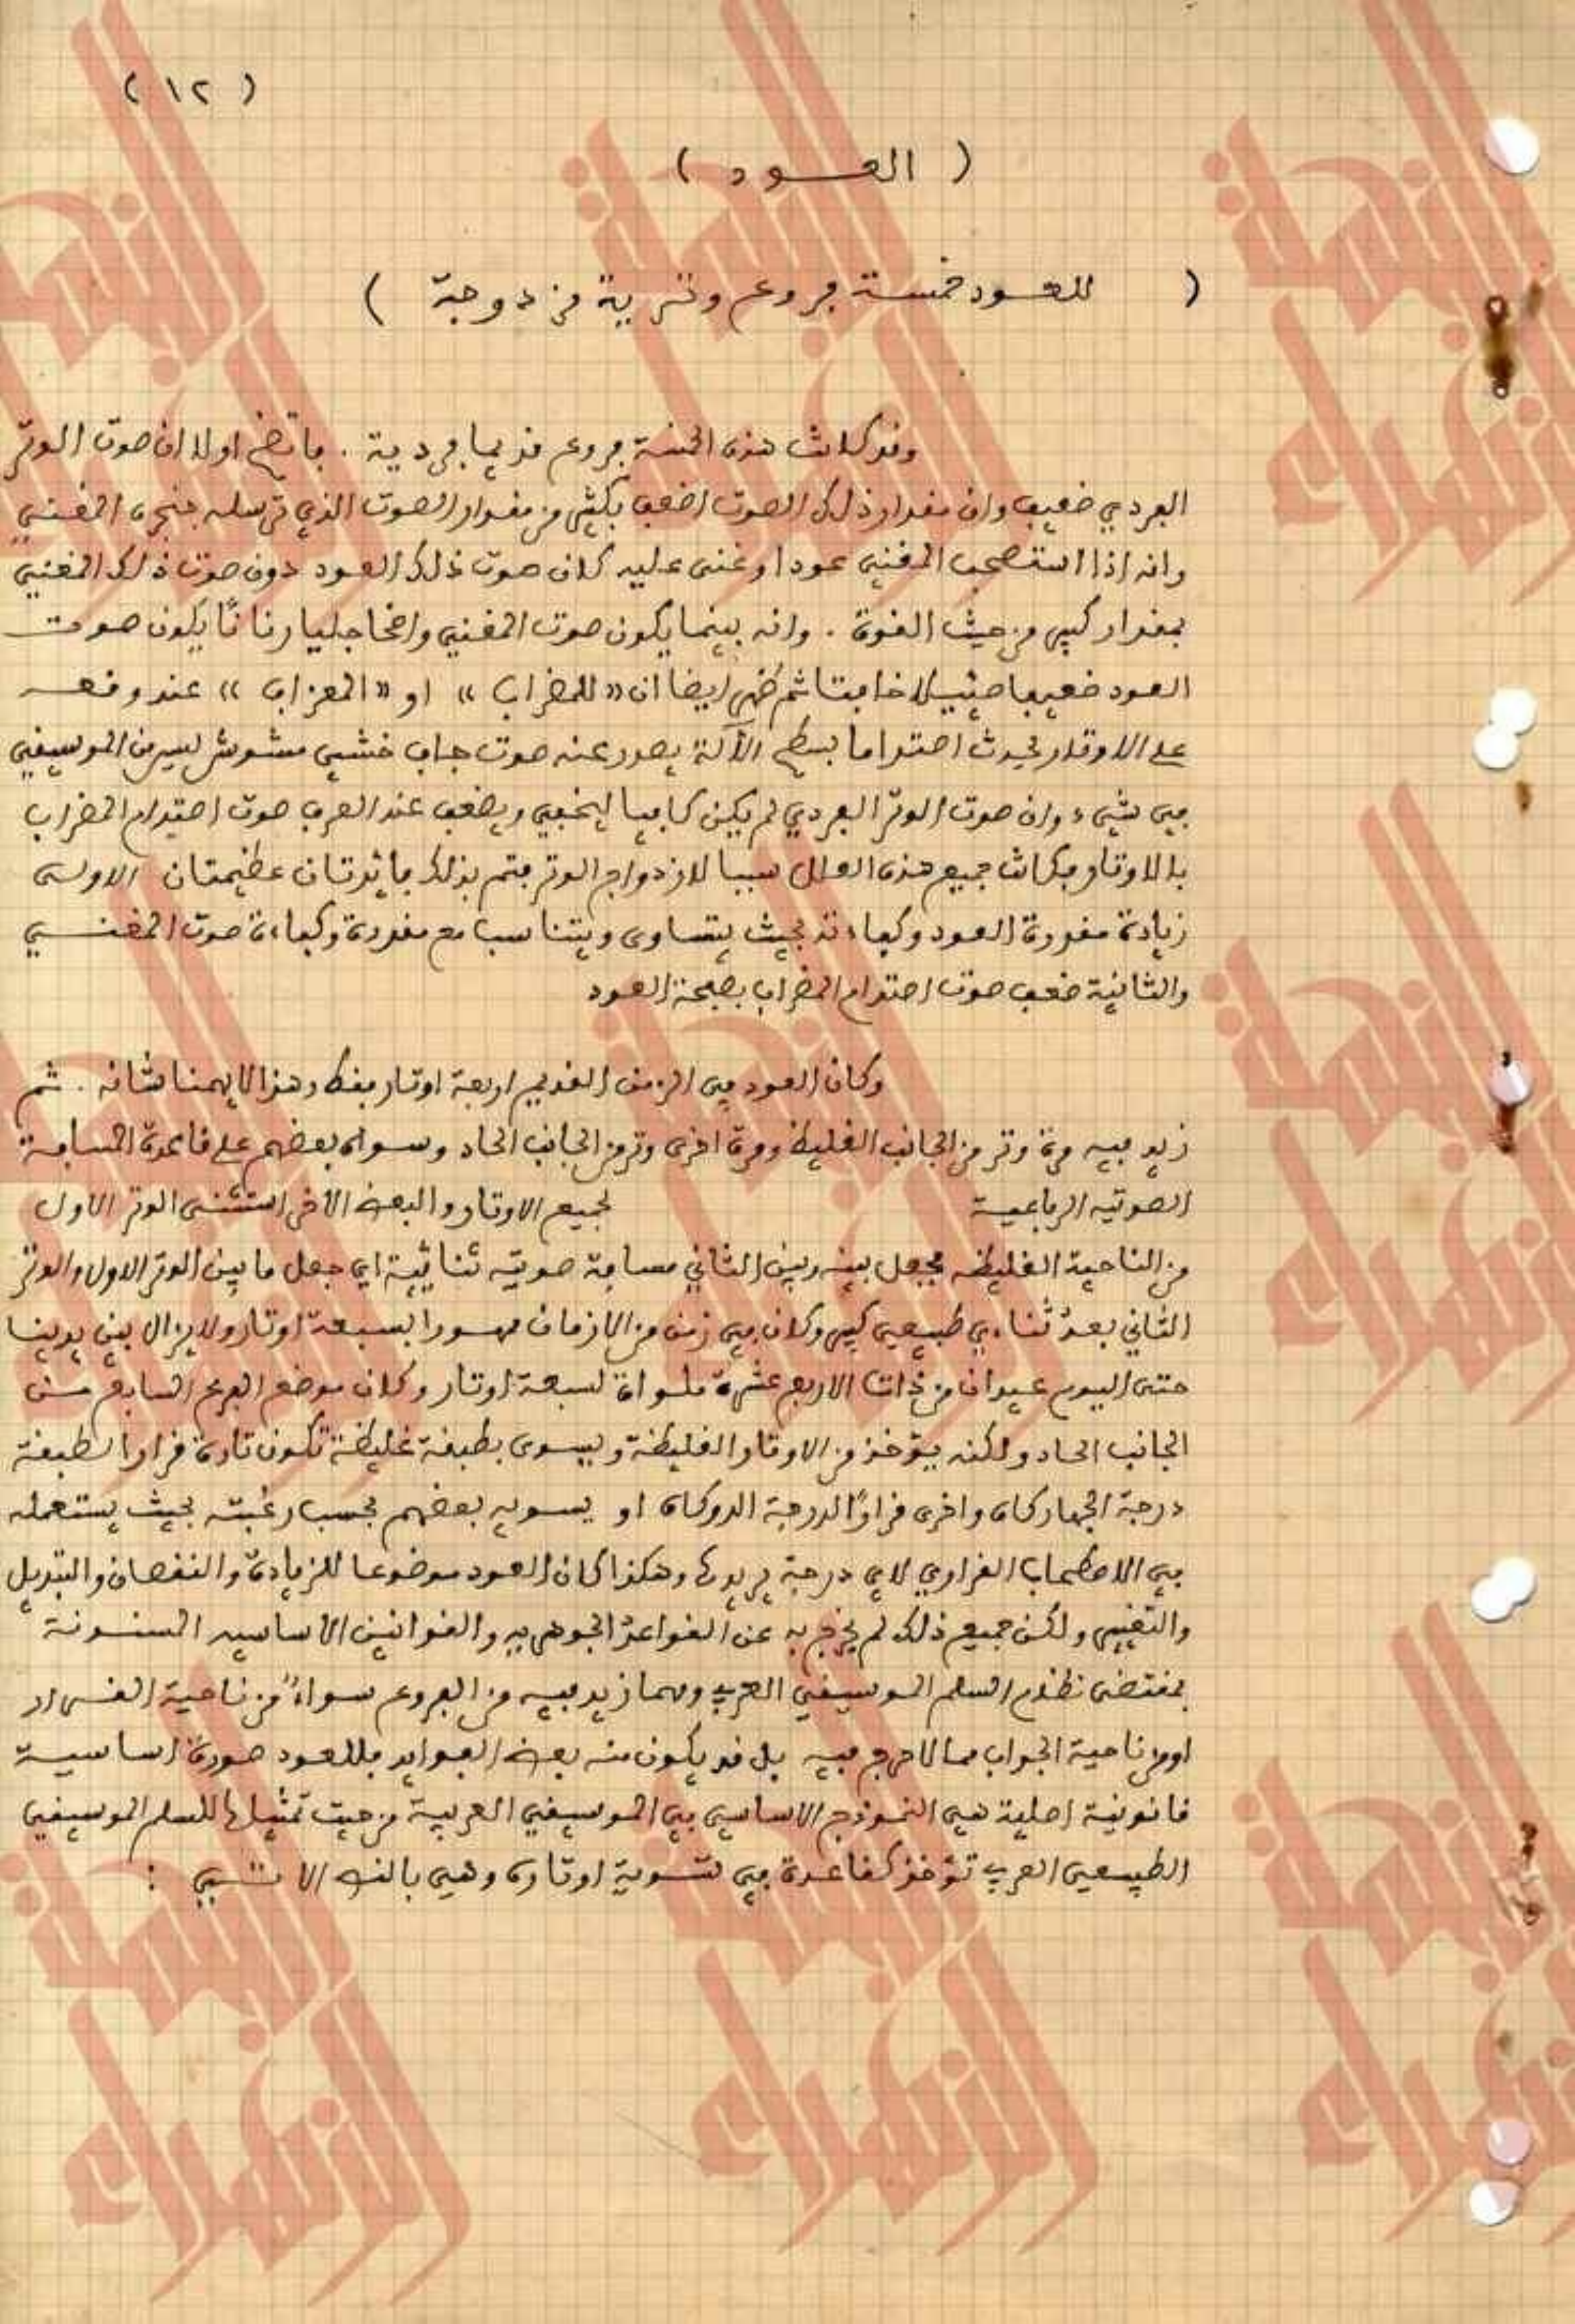 ( ١٢ )
( العسود )
( للعسود خمسة فروع وترية مزدوجة )
وقد كانت هذه الخمسة فروع قديما فردية . فاتضح اولا ان صوت الوتر
الفردي ضعيف وان مقدار ذلك الصوت اضعف بكثير من مقدار الصوت الذي ترسله حنجرة المغني
وانه اذا استصحب المغني عودا وغنى عليه كان صوت ذلك العود دون صوت ذلك المغني
بمقدار كبير من حيث القوة . وانه بينما يكون صوت المغني واضحا جليا رنانًا يكون صوت
العود ضعيفا ضئيلا خافتا ثم ظهر ايضا ان « للمضراب » او « المعزاب » عند وقعه
على الاوتار يحدث اصتداما بسطح الآلة يصدر عنه صوت جاف خشبي مشوش ليس من الموسيقي
في شيء وان صوت الوتر الفردي لم يكن كافيا ليخفي ويضعف عند العزف صوت اصتدام المضراب
بالاوتار فكانت جميع هذه العلل سببا لازدواج الوتر فتم بذلك فائدتان عظيمتان الاولى
زيادة مقدرة العود وكفاءته بحيث يتساوى ويتناسب مع مقدرة وكفاءة صوت المغنـي
والثانية ضعف صوت اصتدام المضراب بصفحة العود
وكان العود في الزمن القديم اربعة اوتار فقط وهذا لا يهمنا شانه . ثم
زيد فيه مرة وتر من الجانب الغليظ ومرة اخرى وتر من الجانب الحاد وسواه بعضهم على قاعدة المسافة
الصوتيه الرباعية لجميع الاوتار والبعض الآخر استثنى الوتر الاول
من الناحية الغليظه فجعل بينه وبين الثاني مسافة صوتيه ثنائية اي جعل ما بين الوتر الاول والوتر
الثاني بعدٌ ثناءي طبيعي كبير وكان في زمن من الازمان مهورا بسبعة اوتار ولا يزال بين يدينا
حتى اليوم عيدان من ذات الاربع عشرة ملواة لسبعة اوتار وكان موضع الفرع السابع مـن
الجانب الحاد ولكنه يتؤخذ من الاوتار الغليظة ويسوى بطبقة غليظة تكون تارة قرارا لطبقة
درجة الجهاركاه واخرى قرارًا لدرجة الدوكاه او يسويه بعضهم بحسب رغبته بحيث يستعمله
في الاصطحاب القراري لاي درجة يريدها وهكذا كان العود موضوعا للزيادة والنقصان والتبديل
والتغيير ولكن جميع ذلك لم يخرج به عن القواعد الجوهريه والقوانين الاساسيه المسنونة
بمقتضى نظام السلم الموسيقي العربي ومهما زيد فيه من الفروع سواءً من ناحية القـرار
او من ناحية الجواب مما لا حرج فيه بل قد يكون منه بعض الفوايد فللعود صورة اساسية
قانونية اصلية هي النموذج الاساسي في الموسيقي العربية من حيت تمثيلها للسلم الموسيقي
الطبيعي العربي تؤخذ كقاعدة في تسوية اوتاره وهي بالنص الاتـي :
النهضة العربية الزهراء